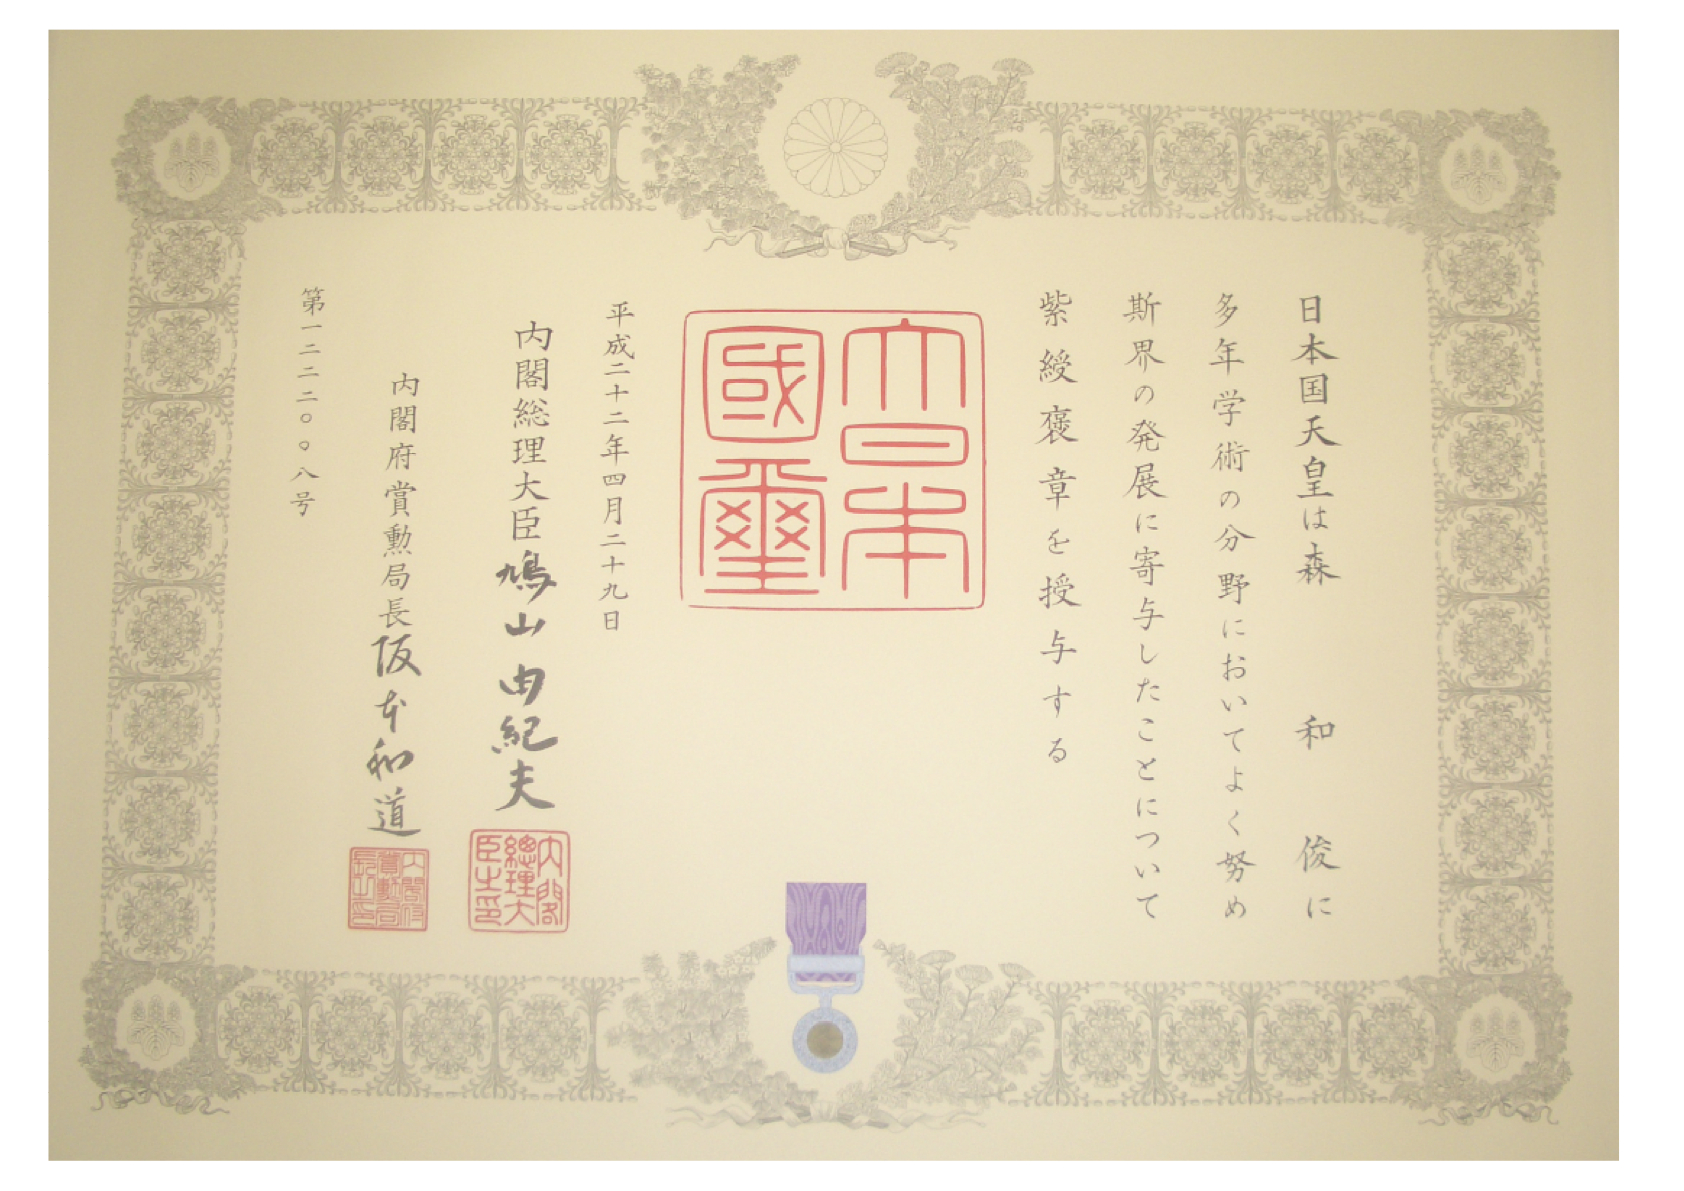 日本国天皇は森和俊に
多年学術の分野においてよく努め
斯界の発展に寄与したことについて
紫綬褒章を授与する
大日本國璽
平成二十二年四月二十九日
内閣総理大臣鳩山由紀夫
内閣總理大臣之印
内閣府賞勲局長阪本和道
内閣府賞勲局長之印
第一二二二〇〇八号